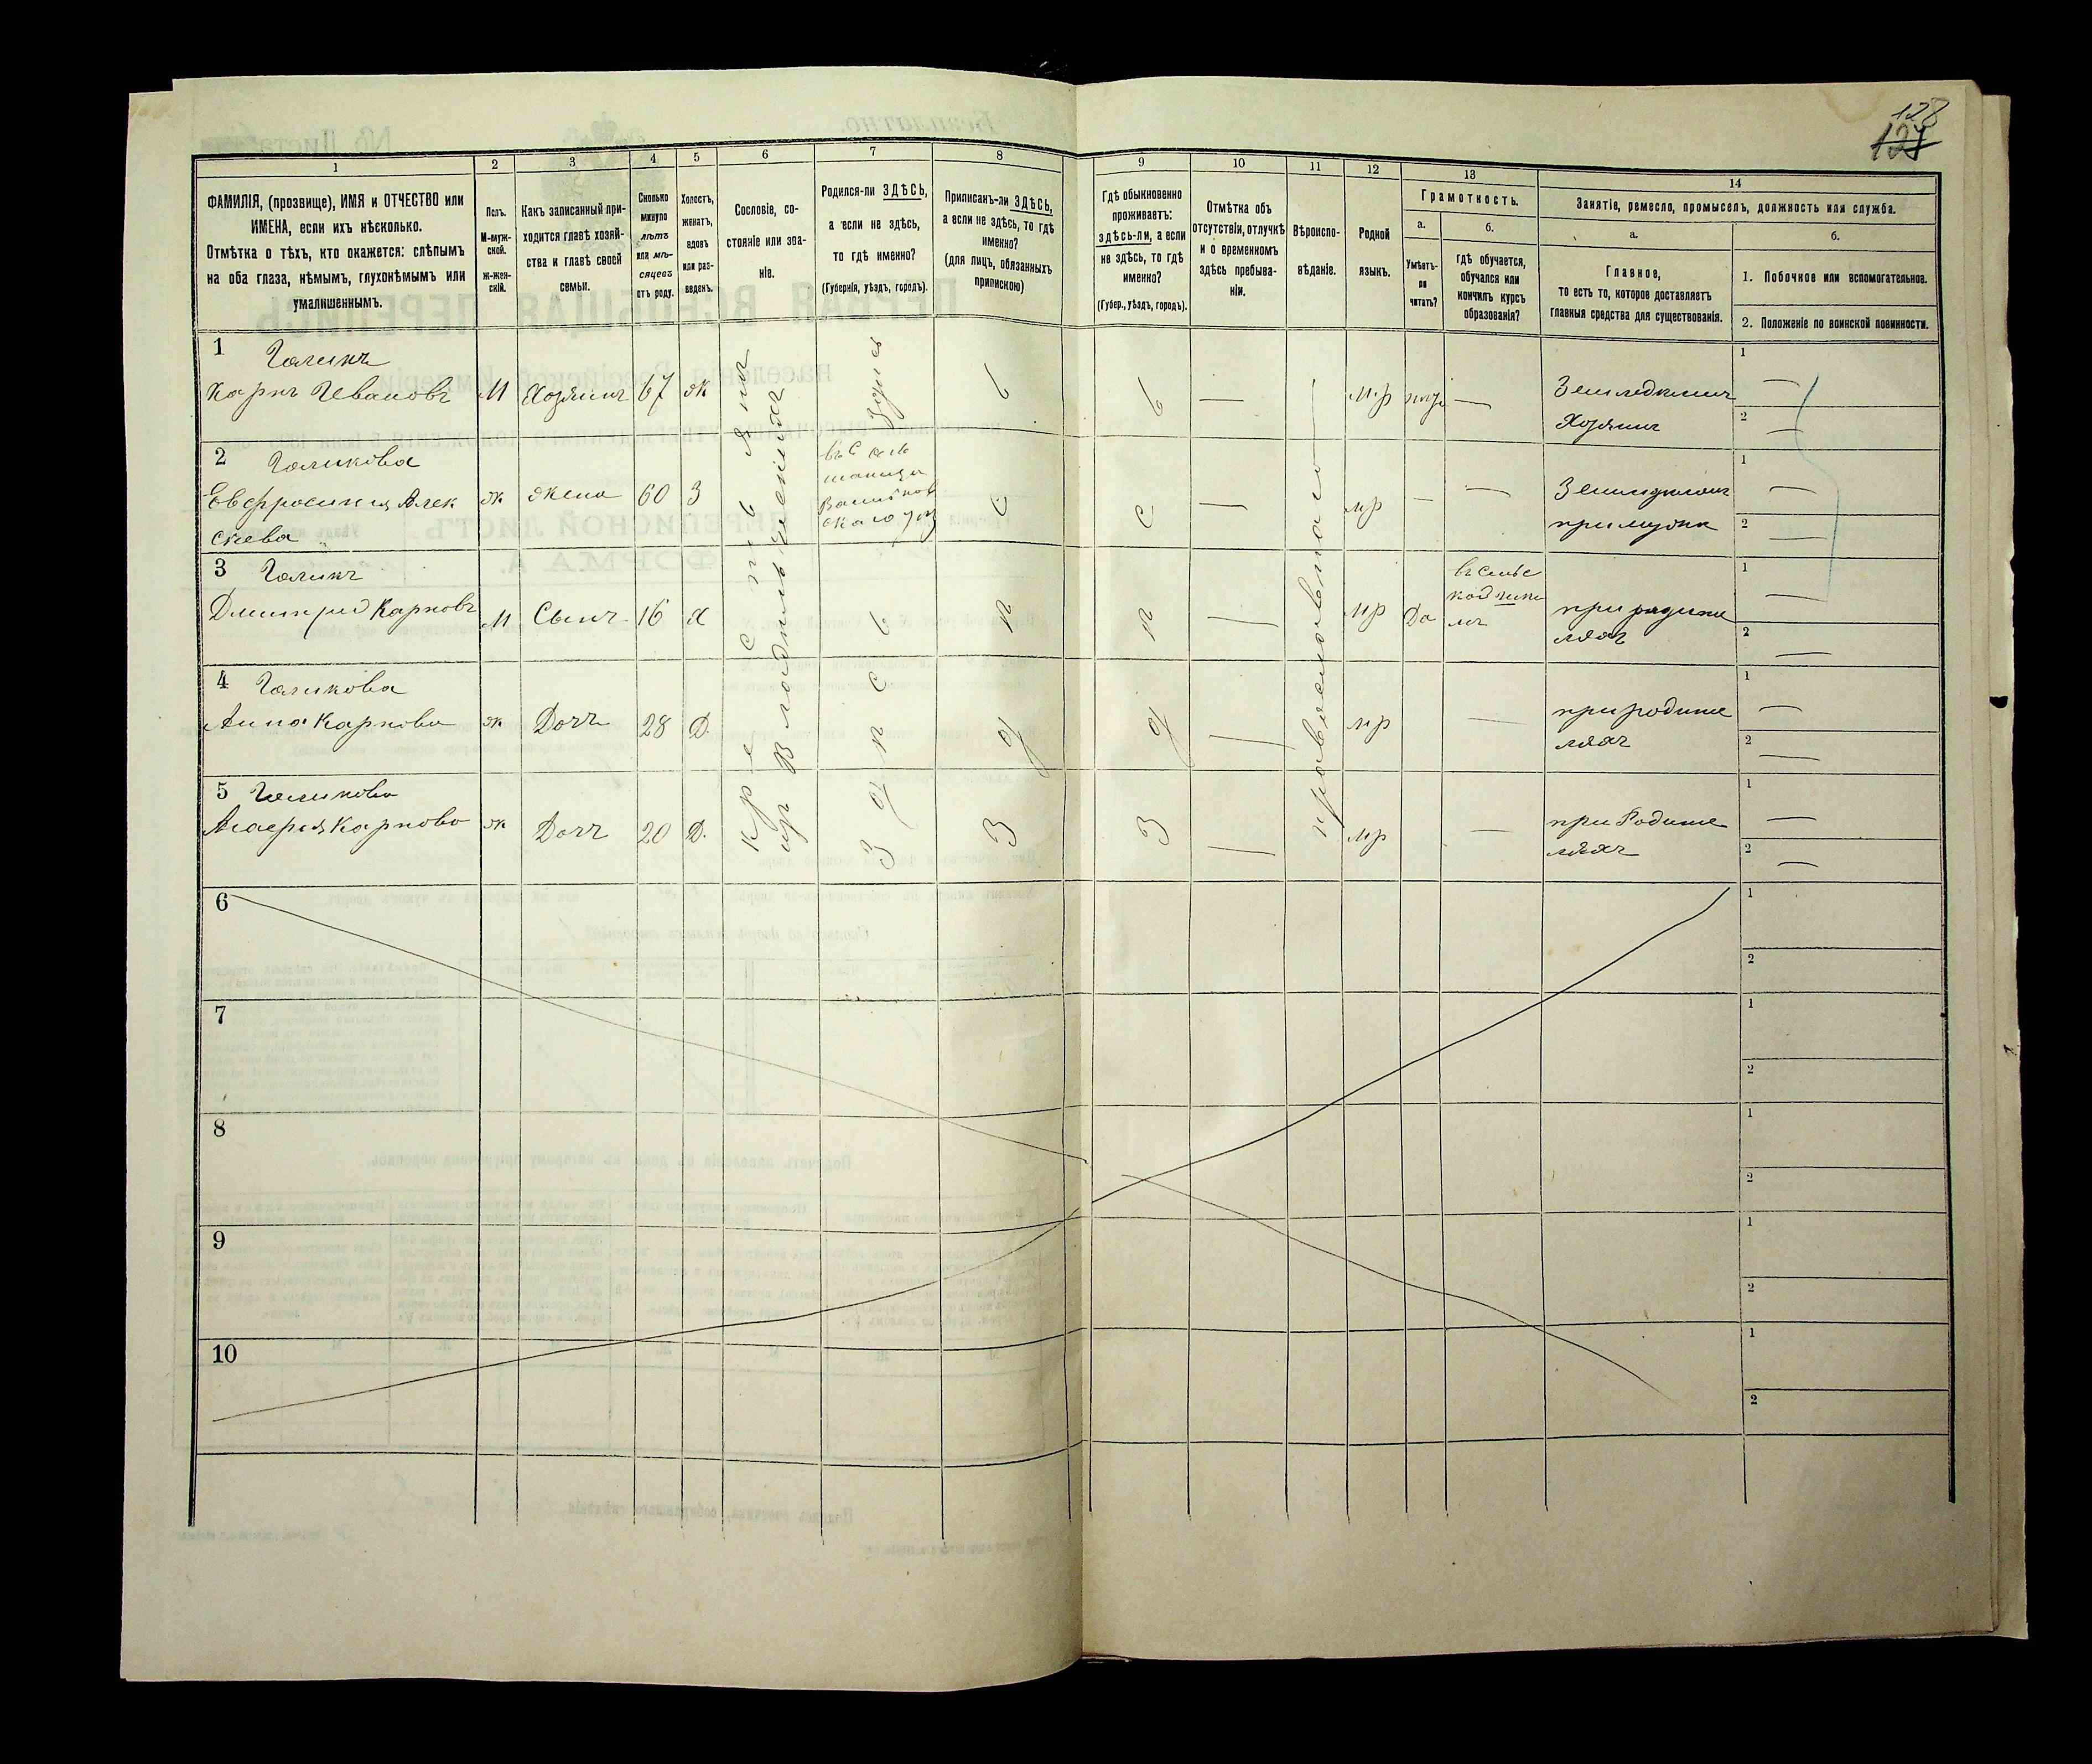 128
127
1
2
3
4
5
6
7
8
9
10
11
12
13
14
ФАМИЛІЯ, (прозвище), ИМЯ и ОТЧЕСТВО или
ИМЕНА, если ихъ нѣсколько.
Отмѣтка о тѣхъ, кто окажется: слѣпымъ
на оба глаза, нѣмымъ, глухонѣмымъ или
умалишеннымъ.
Полъ.
М-муж-
ской.
Ж-жен-
скій.
Какъ записанный при-
ходится главѣ хозяй-
ства и главѣ своей
семьи.
Сколько
минуло
лѣтъ
или мѣ-
сяцевъ
отъ роду.
Холостъ,
женатъ,
вдовъ
или раз-
веденъ.
Сословіе, со-
стояніе или зва-
ніе.
Родился-ли ЗДѢСЬ,
а если не здѣсь,
то гдѣ именно?
(Губернія, уѣздъ, городъ).
Приписанъ-ли ЗДѢСЬ,
а если не здѣсь, то гдѣ
именно?
(для лицъ, обязанныхъ
припискою)
Гдѣ обыкновенно
проживаетъ:
здѣсь-ли, а если
не здѣсь, то гдѣ
именно?
(Губер., уѣздъ, городъ).
Отмѣтка объ
отсутствіи, отлучкѣ
и о временномъ
здѣсь пребыва-
ніи.
Вѣроиспо-
вѣданіе.
Родной
языкъ.
Грамотность.
а.
Умѣетъ-
ли
читать?
б.
гдѣ обучается,
обучался или
кончилъ курсъ
образованія?
Занятіе, ремесло, промыселъ, должность или служба.
а.
Главное,
то есть то, которое доставляетъ
главныя средства для существованія.
б.
1. Побочное или вспомогательное.
2. Положеніе по воинской повинности.
1
Галикъ
Карпъ Ивановъ
М
Хозяинъ
67
ж
здѣсь
мр
Земледѣлецъ
Хозяинъ
1
2
2
Галикова
Евфросинія Алек
сѣева
ж
жена
60
З
мр
при мужѣ
1
2
3
Галикъ
Дмитрій Карповъ
М
Сынъ
16
Х
мр
Да
при родите
ляхъ
1
2
4
Галикова
Анна Карпова
ж
Дочь
28
Д.
мр
при родите
ляхъ
1
2
5
Галикова
Агафія Карпова
ж
Дочь
20
Д.
мр
при Родите
ляхъ
1
2
Крестьянинъ
изъ Владѣльческихъ
здѣсь
здѣсь
здѣсь
православнаго
6
1
2
7
1
2
8
1
2
9
1
2
10
1
2